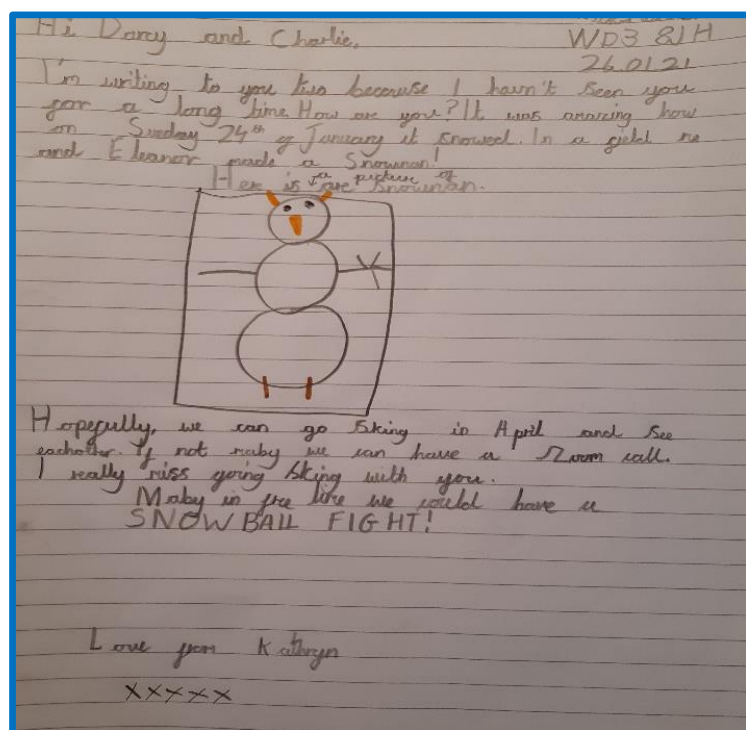 Hi Darcy and Charlie,
WD3 8JH
26.01.21
I'm writing to you two because I havn't seen you
for a long time. How are you? It was amazing how
on Sunday 24th of January it snowed. In a field me
and Eleanor made a Snowman!
Here is a picture of are snowman.
Hopefully, we can go Sking in April and see
eachother. If not maby we can have a Zoom call.
I really miss going sking with you.
Maby in free time we could have a
SNOWBALL FIGHT!
Love from Kathryn
xxxxx